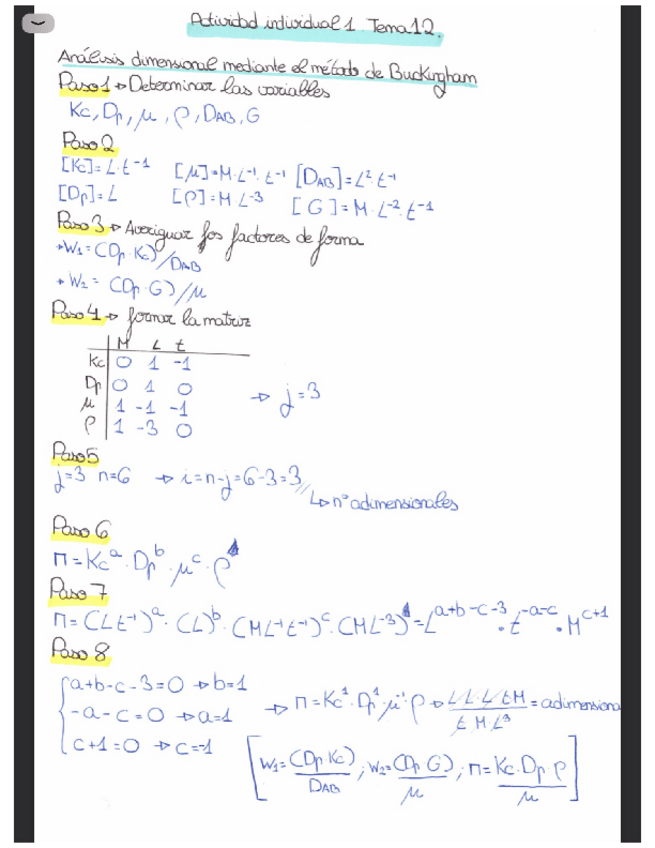 Actividad individual 1 Tema 12.
Análisis dimensional mediante el método de Buckingham
Paso 1 → Determinar las variables
Kc, Dp, μ, ρ, DAB, G
Paso 2
[Kc]=L·t⁻¹ [μ]=M·L⁻¹·t⁻¹ [DAB]=L²·t⁻¹
[Dp]=L [ρ]=M L⁻³ [G]=M·L⁻²·t⁻¹
Paso 3 → Averiguar los factores de forma
→W₁=(Dp·Kc)/DAB
→W₂=(Dp·G)/μ
Paso 4 → formar la matriz
M L t
Kc 0 1 -1
Dp 0 1 0
→ j=3
μ 1 -1 -1
ρ 1 -3 0
Paso 5
j=3 n=6 → i=n-j=6-3=3//
↳ nº adimensionales
Paso 6
Π=Kcᵃ·Dpᵇ·μᶜ·ρ¹
Paso 7
Π=(Lt⁻¹)ᵃ·(L)ᵇ·(ML⁻¹t⁻¹)ᶜ·(ML⁻³)¹=L^(a+b-c-3)·t^(-a-c)·M^(c+1)
Paso 8
a+b-c-3=0 → b=1
-a-c=0 → a=1
→ Π=Kc¹·Dp¹·μ⁻¹·ρ → L·L·L·tM/t·M·L³=adimensiona
c+1=0 → c=-1
[W₁=(Dp·Kc)/DAB; W₂=(Dp·G)/μ; Π=Kc·Dp·ρ/μ]